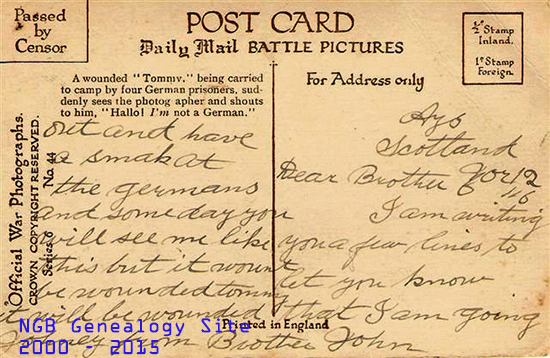 Passed
by
Censor
POST CARD
Daily Mail BATTLE PICTURES
½ᵈ Stamp
Inland.
1ᵈ Stamp
Foreign.
A wounded "Tommy," being carried
to camp by four German prisoners, sud-
denly sees the photog apher and shouts
to him, "Hallo! I'm not a German."
For Address only
Official War Photographs.
CROWN COPYRIGHT RESERVED.
Series 6 No. 44
Scotland
Dear Brother Nov 12
I am writing
you a few lines to
let you know
that I am going
out and have
a smak at
the germans
and some day you
will see me like
this but it wount
be wounded tommy
it will be wounded
from Brother John
Printed in England
NGB Genealogy Site
2000 - 2015